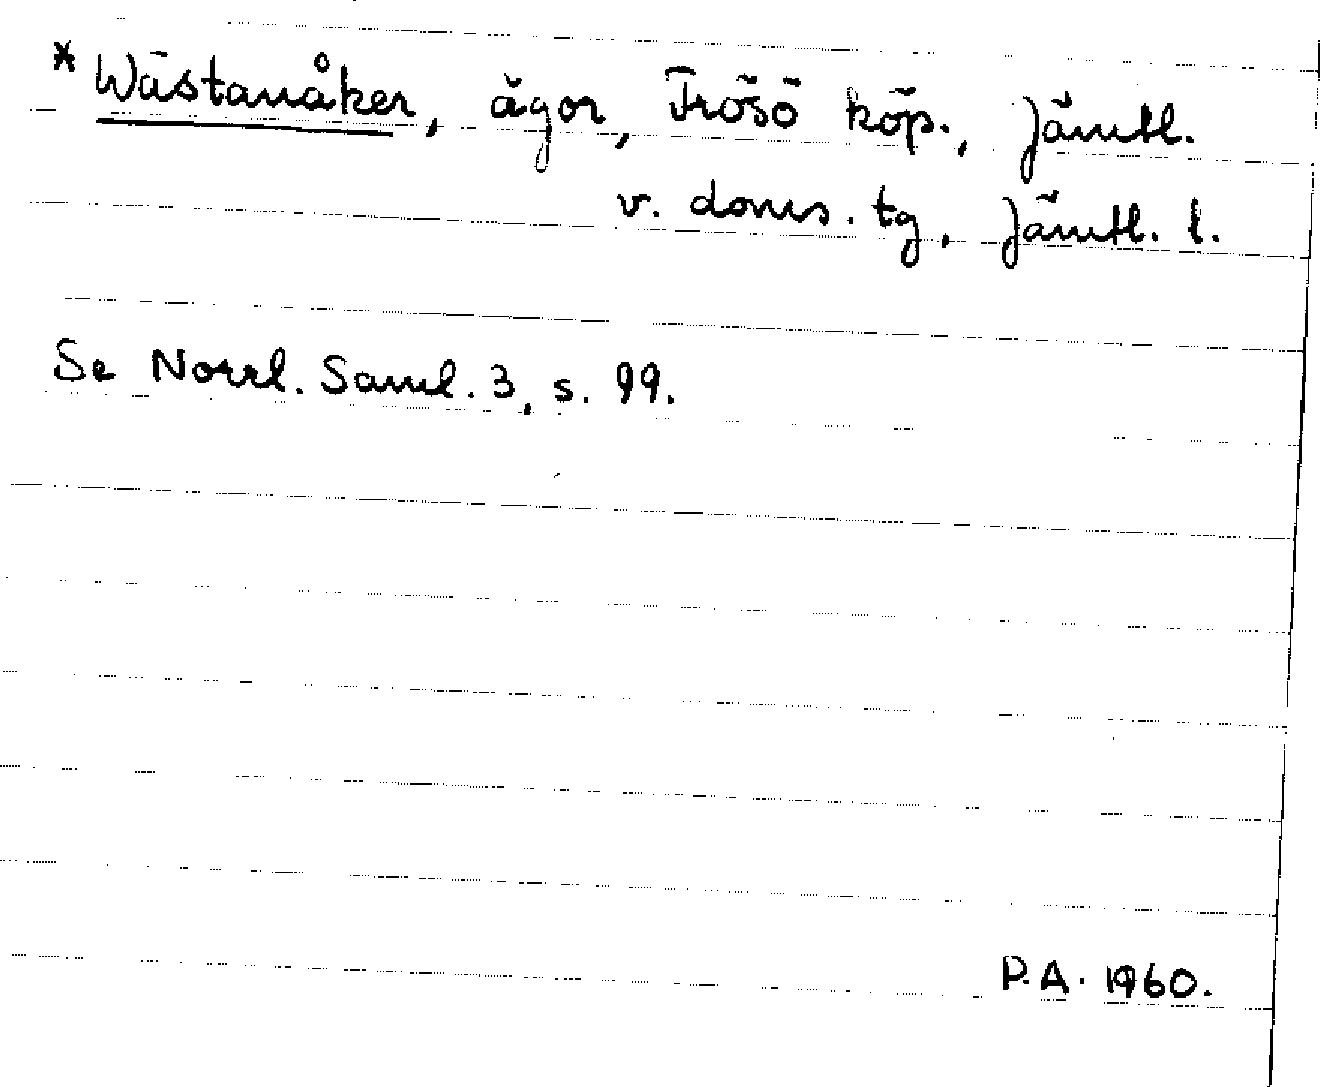 * Wästanåker, ägor, Frösö köp., Jämtl.
v. doms. tg, Jämtl. l.
Se Norrl. Saml. 3, s. 99.
P.A. 1960.